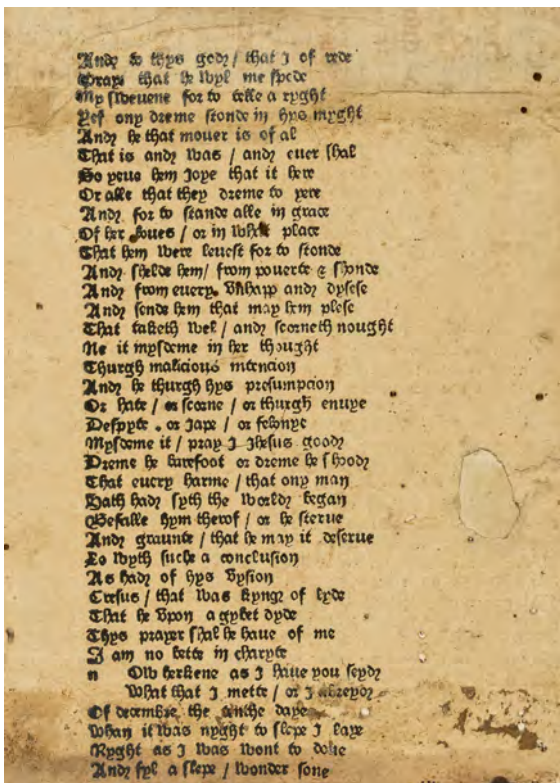 And to thys god / that I of rede
Praye that he wyl me spede
My sweuene for to telle a ryght
Yef ony dreme stonde in hys myght
And he that mouer is of al
That is and was / and euer shal
So yeue hem Joye that it here
Or alle that they dreme to yere
And for to stande alle in grace
Of her loues / or in what place
That hem were leuest for to stonde
And shelde hem / from pouerte & shonde
And from euery vnhapp and dysese
And sende hem that may hem plese
That taketh wel / and scorneth nought
Ne it mysdeme in her thought
Thurgh malicious intencion
And he thurgh hys presumpcion
Or hate / or scorne / or thurgh enuye
Despyte . or Jape / or felonye
Mysdeme it / pray I Jhesus good
Dreme he barefoot or dreme he shood
That euery harme / that ony man
Hath had syth the world began
Befalle hym therof / or he sterue
And graunte / that he may it deserue
Lo wyth suche a conclusion
As had of hys vysion
Cresus / that was kyng of lyde
That he vpon a gybet dyde
Thys prayer shal he haue of me
I am no bette in charyte
n Ow herkene as I haue you seyd
What that I mette / or I abreyd
Of decembre the tenthe daye
Whan it was nyght to slepe I laye
Ryght as I was wont to done
And fyl a slepe / wonder sone